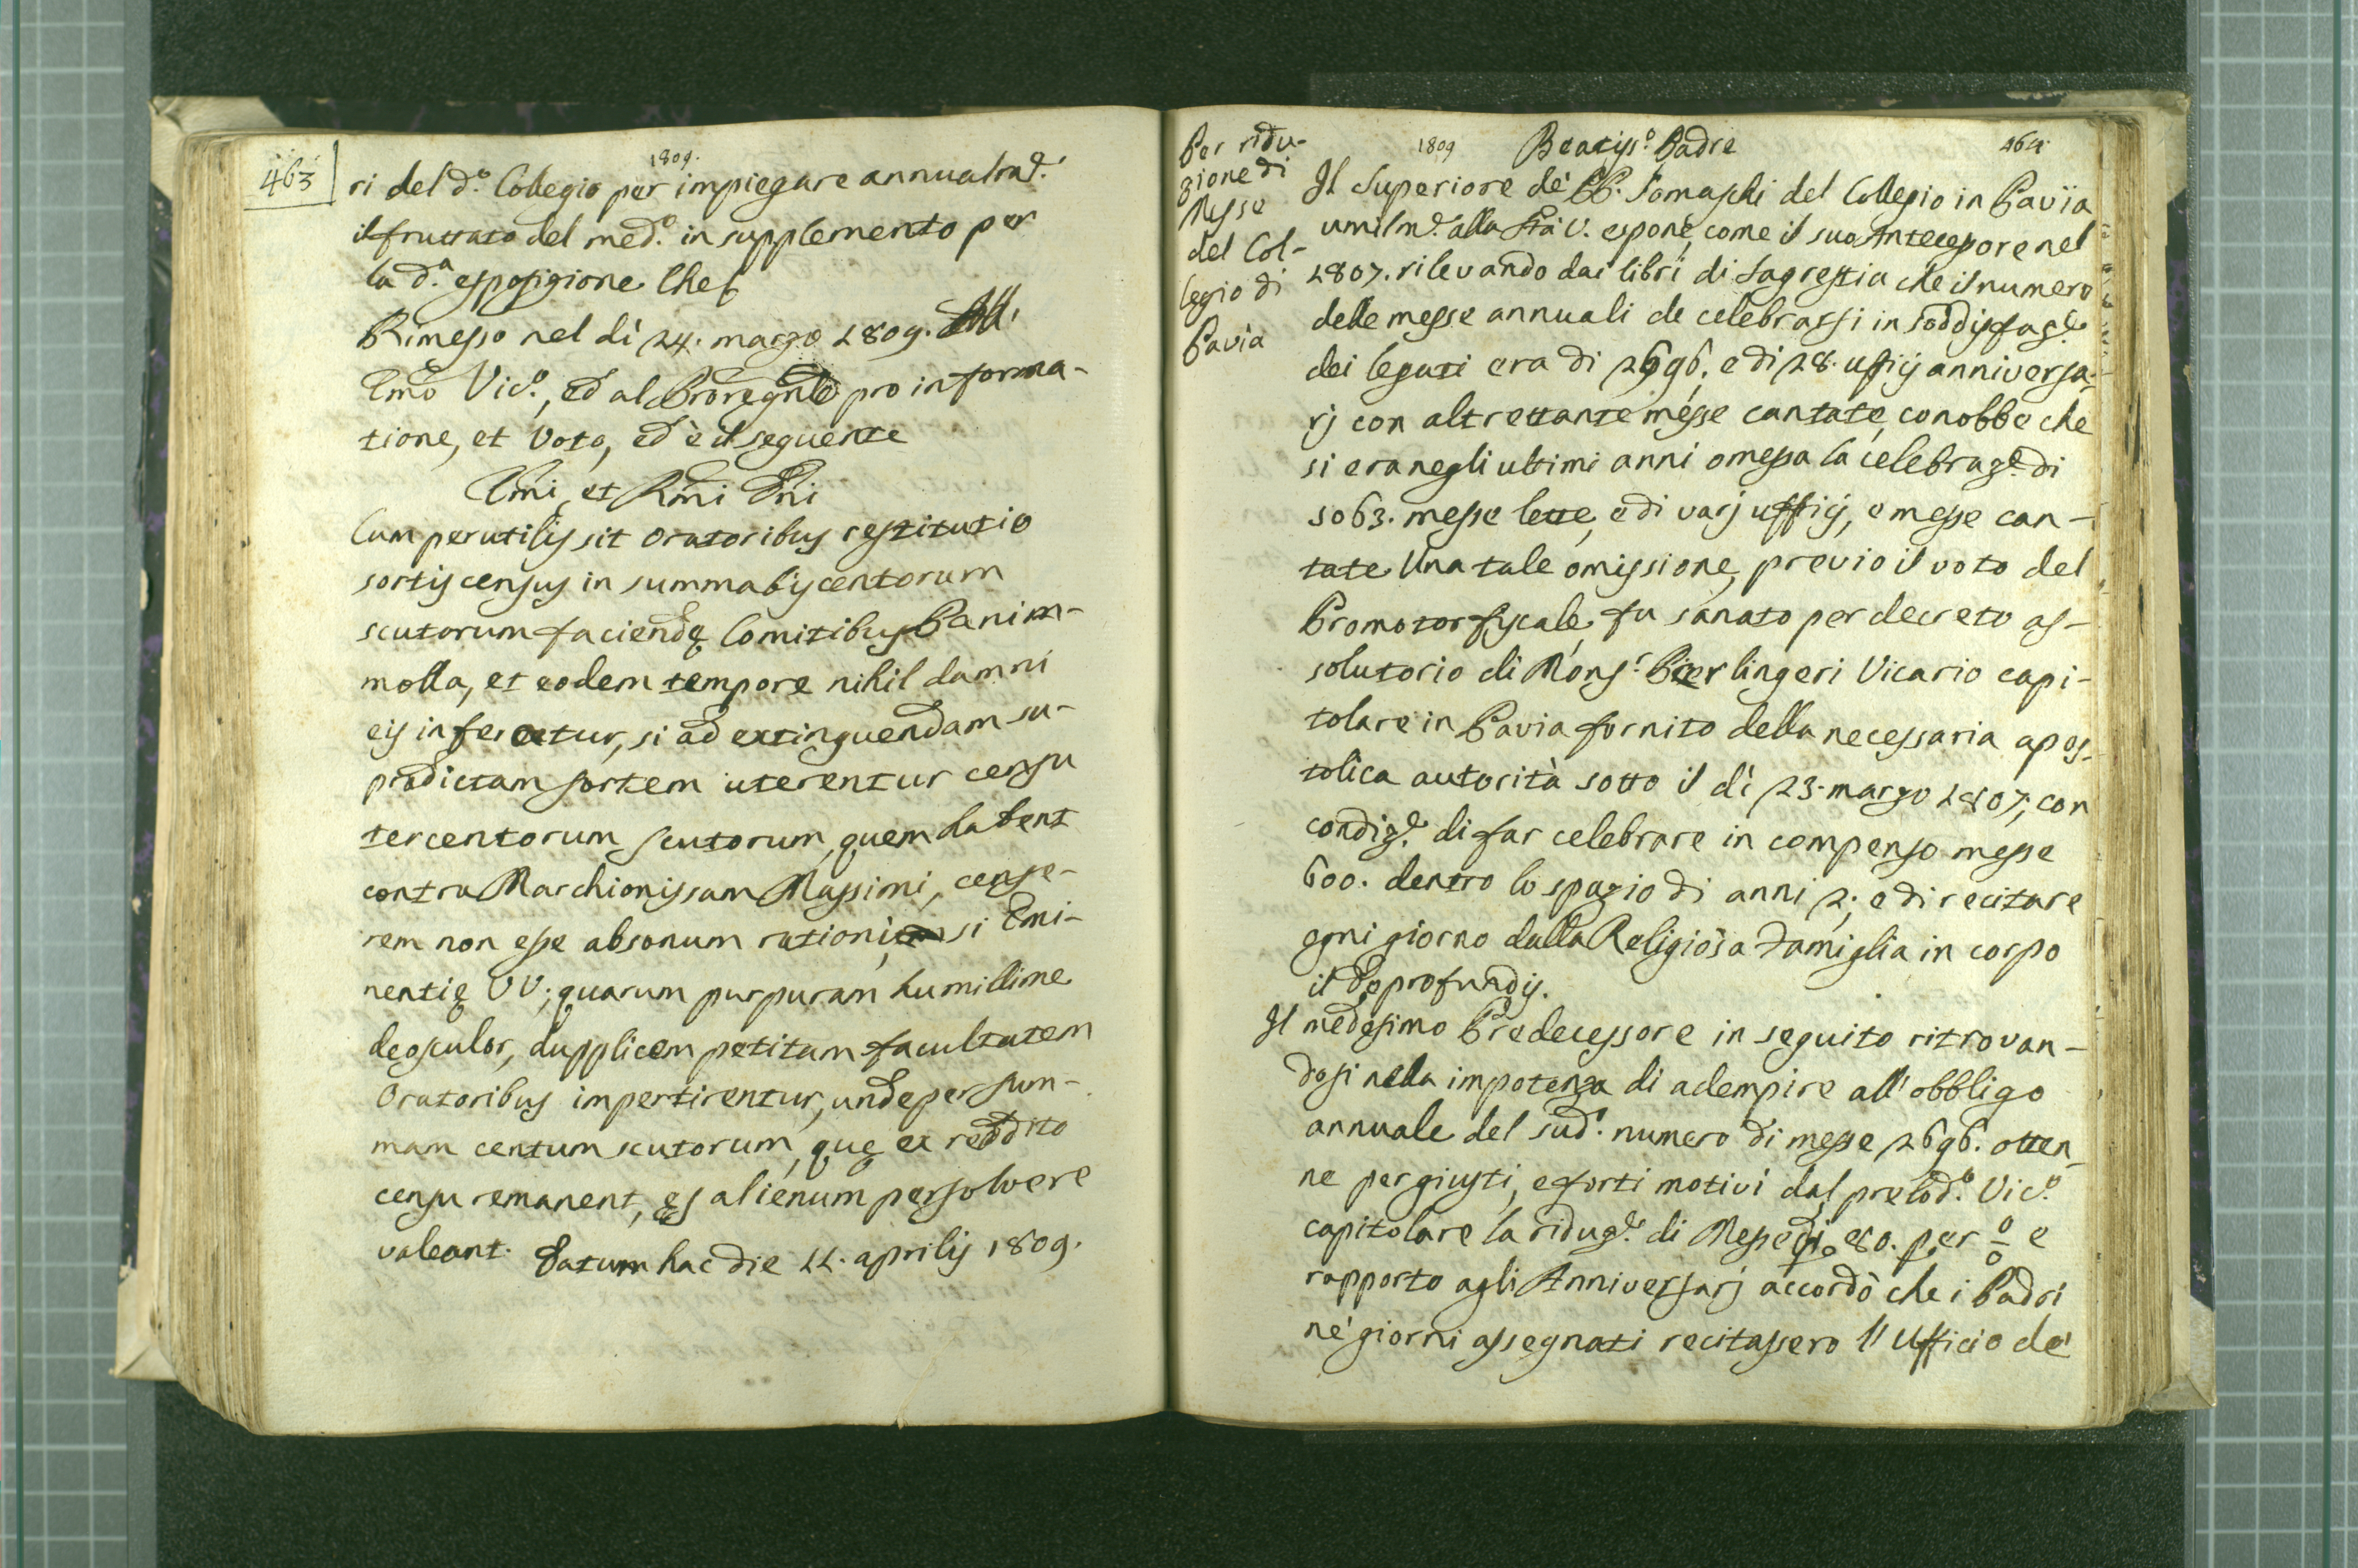 463
1809.
ri del d.º Collegio per impiegare annualm.e
il fruttato del med.º in supplemento per
la d.ª esposizione Che
Rimesso nel dì 24. marzo 1809. All'
Emo Vic.º, ed al Proregnle pro informa-
tione, et Voto, ed è il seguente
Emi, et Rmi Dni
Cum perutilis sit Oratoribus restitutio
sortis census in summa biscentorum
scutorum faciendę Comitibus Panim-
molla, et eodem tempore nihil damni
eis inferretur, si ad extinguendam su-
pradictam sortem uterentur censu
tercentorum scutorum, quem habent
contra Marchionissam Massimi, cense-
rem non esse absonum rationi, si Emi-
nentię VV; quarum purpuram humillime
deosculor, dupplicem petitam facultatem
Oratoribus impertirentur, unde per sum-
mam centum scutorum, quę ex reddito
censu remanent, ęs alienum persolvere
valeant. Datum hac die 11. aprilis 1809.
Per ridu-
zione di
Messe
del Col-
legio di
Pavia
1809 Beatiss.º Padre 464
Il Superiore de' PP. Somaschi del Collegio in Pavia
umilm.e alla Stà V. espone, come il suo Antecessore nel
1807. rilevando dai libri di Sagrestia che il numero
delle messe annuali da celebrarsi in soddisfaz.e
dei legati era di 2696. e di 28. ufficj anniversa-
rj con altrettante messe cantate, conobbe che
si era negli ultimi anni omessa la celebraz.e di
5063. messe lette, e di varj ufficj, e messe can-
tate. Una tale omissione, previo il voto del
Promotor fiscale, fu sanato per decreto as-
solutorio di Mons.r Pierlingeri Vicario capi-
tolare in Pavia fornito della necessaria apos-
tolica autorità sotto il dì 23. marzo 1807, con
condiz.e di far celebrare in compenso messe
600. dentro lo spazio di anni 2; e di recitare
ogni giorno dalla Religiosa Famiglia in corpo
il Deprofundis.
Il medesimo Predecessore in seguito ritrovan-
dosi nella impotenza di adempire all'obbligo
annuale del sud.º numero di messe 2696. otten-
ne per giusti, e forti motivi dal prelod.º Vic.º
capitolare la riduz.e di Messe di 80. per o/o e
rapporto agli Anniversarj accordò che i Padri
ne' giorni assegnati recitassero l'Ufficio de'